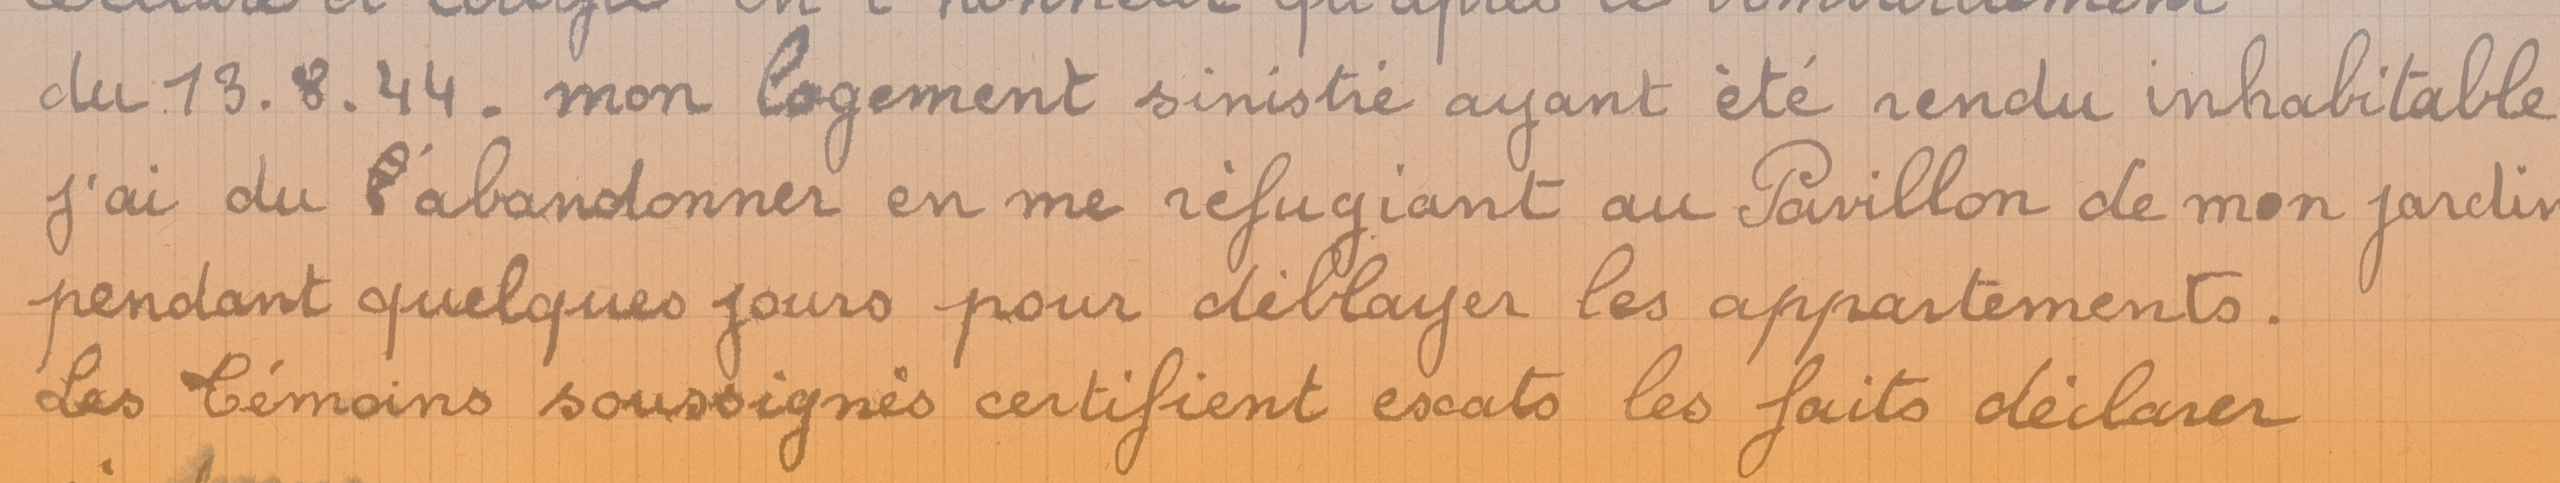 en l'honneur qu'après le bombardement
du 13.8.44. mon logement sinistré ayant été rendu inhabitable
j'ai du l'abandonner en me réfugiant au Pavillon de mon jardin
pendant quelques jours pour déblayer les appartements.
Les témoins soussignés certifient excats les faits déclarer